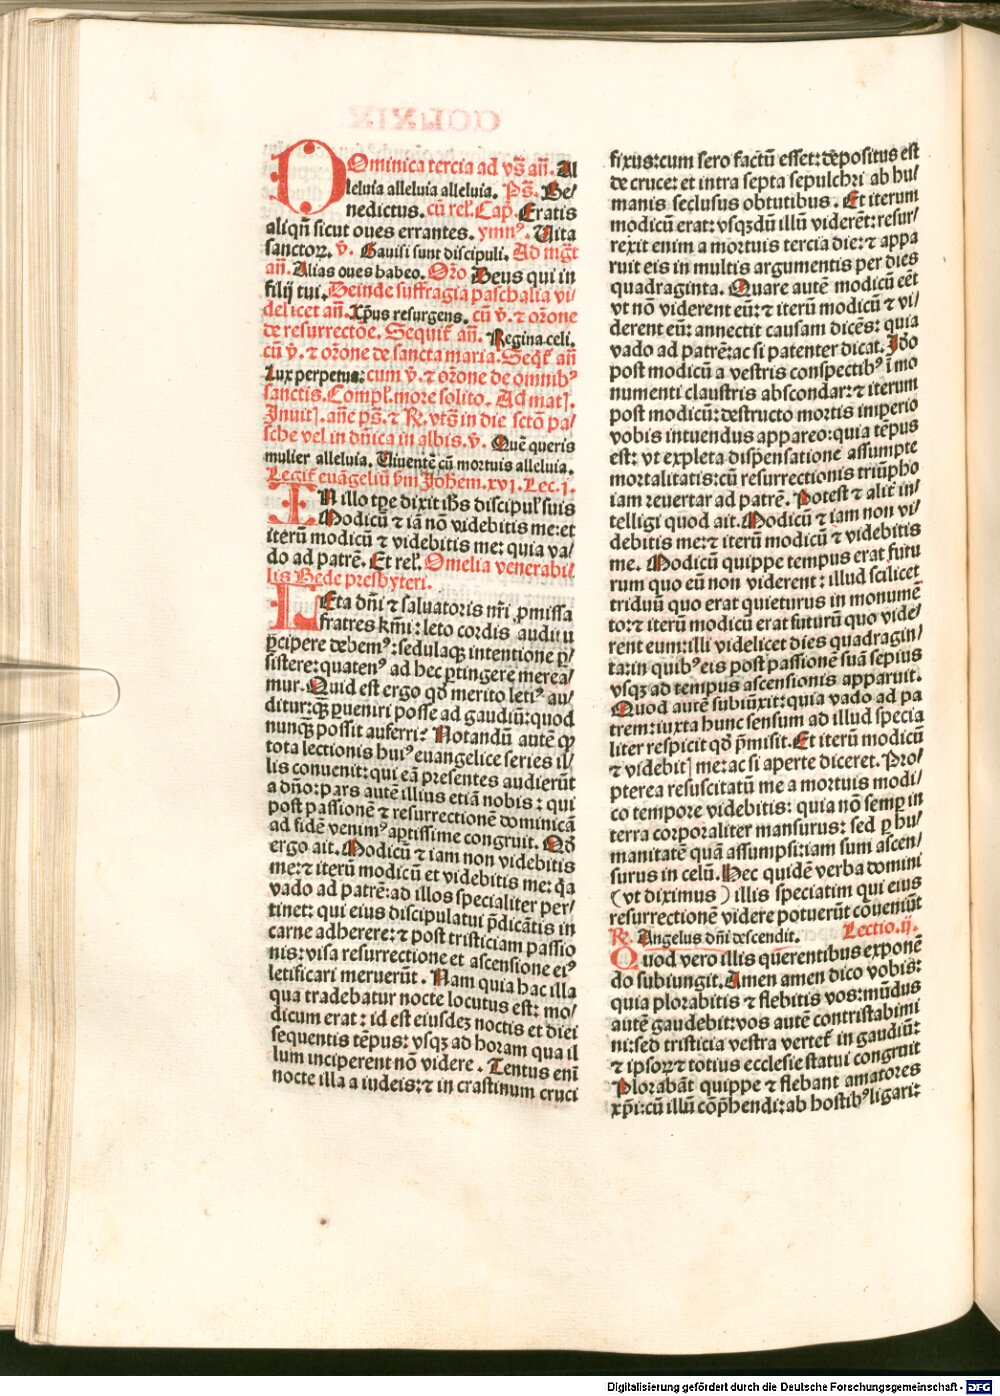 DOminica tercia ad vs̄ an̄. Al
leluia alleluia alleluia. Ps̄. Be/
nedictus. cū rel̕. Cap̕. Eratis
aliqn̄ sicut oues errantes. ymnꝰ. Uita
sanctoꝝ. v̄. Gauisi sunt discipuli. Ad mgt̄
an̄. Alias oues habeo. Oro Deus qui in
filij tui. Deinde suffragia paschalia vi/
delicet an̄. Xp̄us resurgens. cū v̄. ⁊ orōne
de resurrectōe. Sequit̕ an̄. Regina celi.
cū v̄. ⁊ orōne de sancta maria. Seqt̕ an̄
Lux perpetua: cum v̄. ⁊ orōne de omnibꝰ
sanctis. Compl̕. more solito. Ad matꝭ.
Inuitꝭ. an̄e ps̄. ⁊ R̄. vts̄ in die sctō pa/
sche vel in dn̄ica in albis. v̄. Quē queris
mulier alleluia. Uiuentē cū mortuis alleluia.
Legit̕ euāgeliū ẜm Johem. xvj. Lec. j.
IN illo tp̄e dixit ih̄s discipul̕ suis
Modicū ⁊ iā nō videbitis me: et
iterū modicū ⁊ videbitis me: quia va/
do ad patrē. Et rel̕. Omelia venerabi/
lis Bede presbyteri.
LEta dn̄i ⁊ saluatoris nr̄i ꝓmissa
fratres kr̄mi: leto cordis auditu
ꝑcipere debemꝰ: sedulaqꝫ intentione ꝑ/
sistere: quatenꝰ ad hec ꝑtingere merea/
mur. Quid est ergo qd̄ merito letiꝰ au/
ditur: qꝫ ꝑueniri posse ad gaudiū: quod
nunqꝫ possit auferri? Notandū autē ꝙ
tota lectionis huiꝰ euangelice series il/
lis conuenit: qui eā presentes audierūt
a dn̄o: pars autē illius etiā nobis: qui
post passionē ⁊ resurrectionē dominicā
ad fidē venimꝰ aptissime congruit. Qd̄
ergo ait. Modicū ⁊ iam non videbitis
me: ⁊ iterū modicū et videbitis me: q̄a
vado ad patrē: ad illos specialiter per/
tinet: qui eius discipulatui p̄dicātis in
carne adherere: ⁊ post tristiciam passio
nis: visa resurrectione et ascensione eiꝰ
letificari meruerūt. Nam quia hac illa
qua tradebatur nocte locutus est: mo/
dicum erat: id est eiusdeꝫ noctis et diei
sequentis tēpus: vsqꝫ ad horam qua il
lum inciperent nō videre. Tentus enī
nocte illa a iudeis: ⁊ in crastinum cruci
fixus: cum sero factū esset: depositus est
de cruce: et intra septa sepulchri ab hu/
manis seclusus obtutibus. Et iterum
modicū erat: vsqꝫdū illū viderēt: resur/
rexit enim a mortuis tercia die: ⁊ appa
ruit eis in multis argumentis per dies
quadraginta. Quare autē modicū eēt
vt nō viderent eū: ⁊ iterū modicū ⁊ vi/
derent eū: annectit causam dicēs: quia
vado ad patrē: ac si patenter dicat. Ido
post modicū a vestris conspectibꝰ ī mo
numenti claustris abscondar: ⁊ iterum
post modicū: destructo mortis imperio
vobis intuendus appareo: quia tēpus
est: vt expleta dispensatione assumpte
mortalitatis: cū resurrectionis triūpho
iam reuertar ad patrē. Potest ⁊ alit̕ in/
telligi quod ait. Modicū ⁊ iam non vi/
debitis me: ⁊ iterū modicū ⁊ videbitis
me. Modicū quippe tempus erat futu
rum quo eū non viderent: illud scilicet
triduū quo erat quieturus in monumē
to: ⁊ iterū modicū erat futurū quo vide/
rent eum: illi videlicet dies quadragin/
ta: in quibꝰ eis post passionē suā sepius
vsqꝫ ad tempus ascensionis apparuit.
Quod autē subiūxit: quia vado ad pa
trem: iuxta hunc sensum ad illud specia
liter respicit qd̄ p̄misit. Et iterū modicū
⁊ videbitꝭ me: ac si aperte diceret. Pro/
pterea resuscitatū me a mortuis modi/
co tempore videbitis: quia nō semꝑ in
terra corporaliter mansurus: sed ꝑ hu/
manitatē quā assumpsi: iam sum ascen/
surus in celū. Hec quidē verba domini
(vt diximus) illis speciatim qui eius
resurrectionē videre potuerūt cōueniūt
R̄. Angelus dn̄i descendit. Lectio. ij.
Quod vero illis querentibus exponē
do subiungit. Amen amen dico vobis:
quia plorabitis ⁊ flebitis vos: mūdus
autē gaudebit: vos autē contristabimi
ni: sed tristicia vestra vertet̕ in gaudiū:
⁊ ipsoꝝ ⁊ totius ecclesie statui congruit
Plorabāt quippe ⁊ flebant amatores
xp̄i: cū illū cōp̄hendi: ab hostibꝰ ligari:
Digitalisierung gefördert durch die Deutsche Forschungsgemeinschaft - DFG